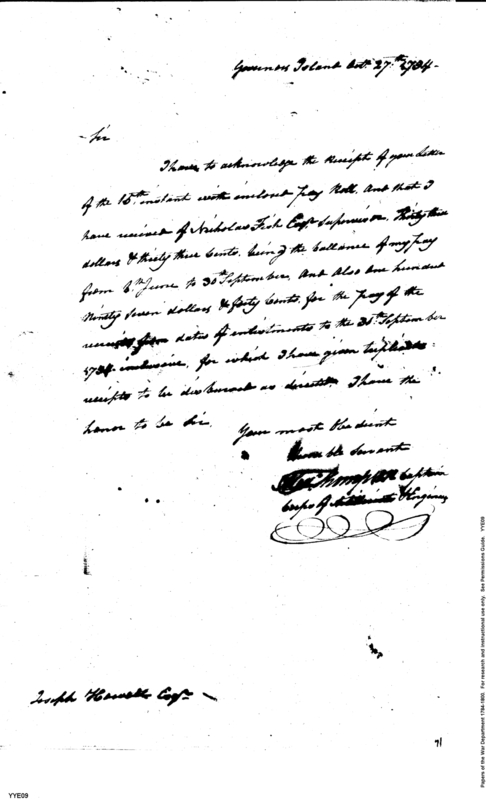 Governors Island Oct. 27th 1794-
Sir
I have to acknowledge the Receipt of your Letter
of the 15th instant with inclosed pay Roll, And that I
have received of Nicholas Fish Esqr Supervisor, Thirty three
dollars & thirty three Cents, being the ballance of my pay
from 6th June to 30th September, And also One hundred
Ninety Seven dollars & forty Cents, for the pay of the
recruits from dates of enlistments to the 30th September
1794 inclusive, for which I have given triplicate
receipts to be disbursed as directed. I have the
honor to be Sir.
Your most Obedient
Humble Servant
Alexr Thompson Captain
Corps of Artillerists & Engineers
Joseph Howell Esqr
71
YYE09
Papers of the War Department 1784-1800. For research and instructional use only. See Permissions Guide. YYE09